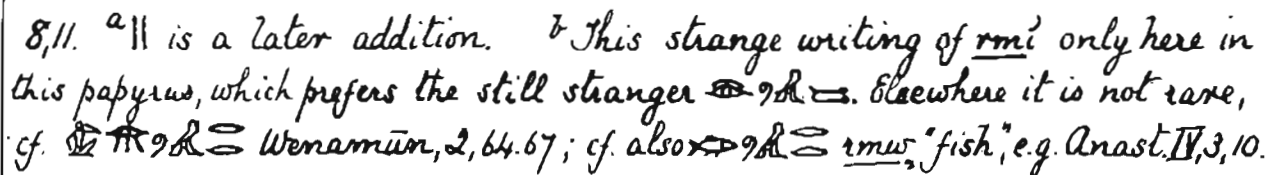 8,11. a\\ is a later addition. b This strange writing of rmἰ only here in
this papyrus, which prefers the still stranger . Elsewhere it is not rare,
cf. Wenamūn, 2, 64.67; cf. also rmw, "fish", e.g. Anast. IV, 3, 10.